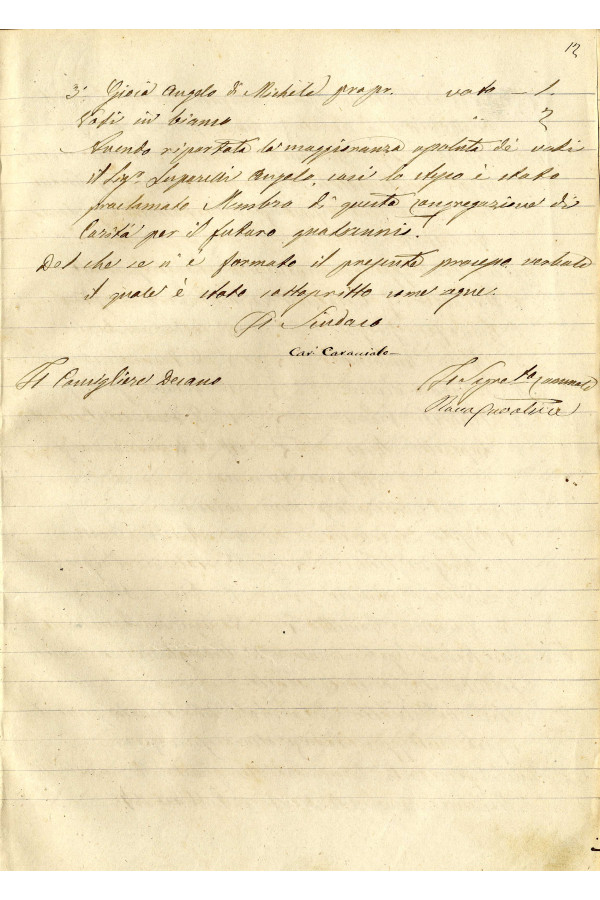 12
3° Gioia Angelo di Michele propr. voto – 1.
Voti in bianco " 2
Avendo riportata la maggioranza assoluta de' voti
il Sig.r Luparelli Angelo, così lo stesso è stato
proclamato Membro di questa Congregazione di
Carità per il futuro quadriennio.
Del che se n'è formato il presente processo verbale
il quale è stato sottoscritto come segue.
Il Sindaco
Car. Caracciolo
Il Consigliere Decano Il Segret.rio Comunale